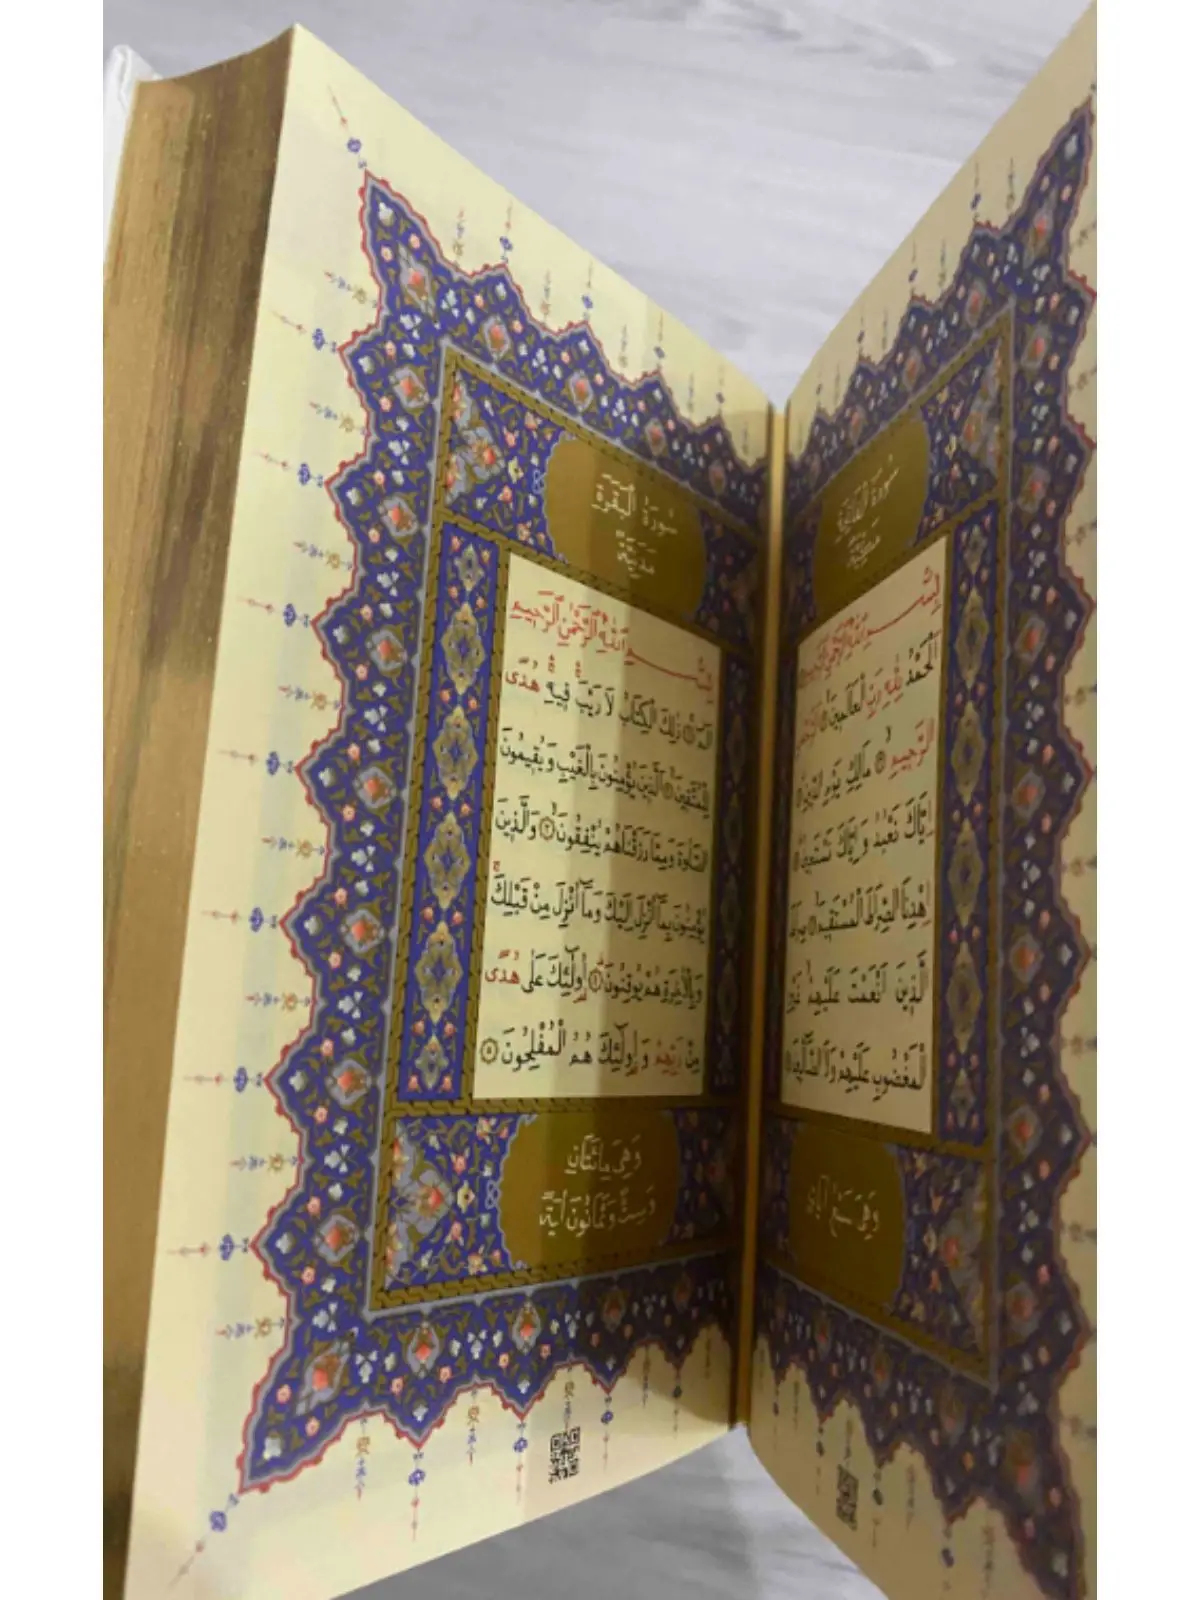 سُورَةُ الْفَاتِحَةِ
مَكِّيَّةٌ
بِسْمِ اللّٰهِ الرَّحْمٰنِ الرَّحِيمِ
اَلْحَمْدُ لِلّٰهِ رَبِّ الْعَالَمِينَ ۝ اَلرَّحْمٰنِ
الرَّحِيمِ ۝ مَالِكِ يَوْمِ الدِّينِ ۝
اِيَّاكَ نَعْبُدُ وَاِيَّاكَ نَسْتَعِينُ ۝
اِهْدِنَا الصِّرَاطَ الْمُسْتَقِيمَ ۝ صِرَاطَ
الَّذِينَ اَنْعَمْتَ عَلَيْهِمْ غَيْرِ
الْمَغْضُوبِ عَلَيْهِمْ وَلَا الضَّالِّينَ ۝
وَهِيَ سَبْعُ اٰيَاتٍ
سُورَةُ الْبَقَرَةِ
مَدَنِيَّةٌ
بِسْمِ اللّٰهِ الرَّحْمٰنِ الرَّحِيمِ
الٓمٓ ۝ ذٰلِكَ الْكِتَابُ لَا رَيْبَ فِيهِ هُدًى
لِلْمُتَّقِينَ ۝ اَلَّذِينَ يُؤْمِنُونَ بِالْغَيْبِ وَيُقِيمُونَ
الصَّلٰوةَ وَمِمَّا رَزَقْنَاهُمْ يُنْفِقُونَ ۝ وَالَّذِينَ
يُؤْمِنُونَ بِمَا اُنْزِلَ اِلَيْكَ وَمَا اُنْزِلَ مِنْ قَبْلِكَ
وَبِالْاٰخِرَةِ هُمْ يُوقِنُونَ ۝ اُولٰئِكَ عَلٰى هُدًى
مِنْ رَبِّهِمْ وَاُولٰئِكَ هُمُ الْمُفْلِحُونَ ۝
وَهِيَ مِائَتَانِ
وَسِتٌّ وَثَمَانُونَ اٰيَةً